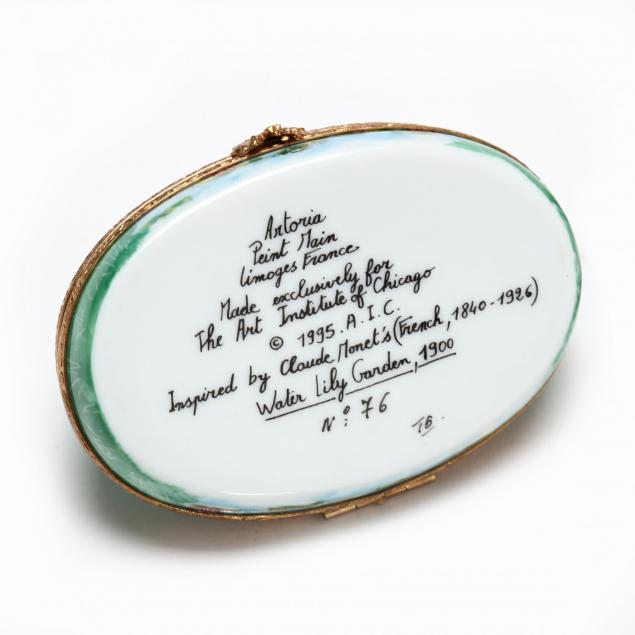 Artoria
Peint Main
Limoges France
Made exclusively for
The Art Institute of Chicago
© 1995. A.I.C.
Inspired by Claude Monet's (French, 1840-1926)
Water Lily Garden, 1900
N°: 76
TB.